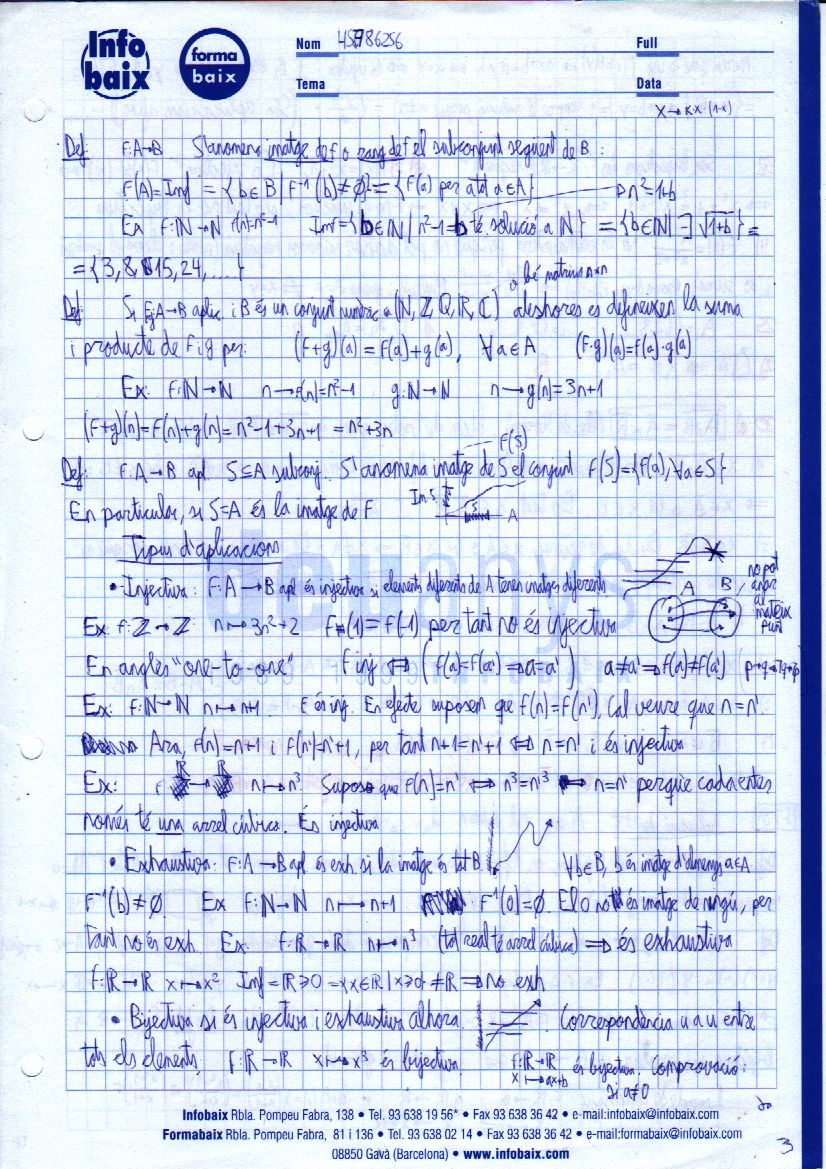 Info baix
forma baix
Nom 45786256 Full
Tema Data
Def: f:A→B S'anomena imatge de f o rang de f el subconjunt següent de B:
f(A)=Imf = {b∈B | f⁻¹(b)≠∅} = {f(a) per a tot a∈A} n²=1+b
Ex f:ℕ→ℕ f(n)=n²-1 Imf={b∈ℕ | n²-1=b té solució a ℕ} = {b∈ℕ | ∃ √1+b} =
= {3, 8, 15, 24, ....}
o bé matrius n×n
Def: Si f,g:A→B aplic. i B és un conjunt numèric (ℕ, ℤ, ℚ, ℝ, ℂ) aleshores es defineixen la suma
i producte de f i g per: (f+g)(a) = f(a)+g(a), ∀a∈A (f·g)(a)=f(a)·g(a)
Ex: f:ℕ→ℕ n→f(n)=n²-1 g:ℕ→ℕ n→g(n)=3n+1
(f+g)(n)=f(n)+g(n)=n²-1+3n+1 = n²+3n
f(S)
Def: f:A→B apl. S⊆A subconj. S'anomena imatge de S el conjunt f(S)={f(a), ∀a∈S}
En particular, si S=A és la imatge de f Im S S A
Tipus d'aplicacions
• Injectiva: f:A→B apl és injectiva si elements diferents de A tenen imatges diferents
A B no pot anar al mateix punt
Ex: f:ℤ→ℤ n↦3n²+2 f(1)=f(-1) per tant no és injectiva
En anglès "one-to-one" f inj ⟺ (f(a)=f(a') ⟹ a=a') a≠a' ⟹ f(a)≠f(a')
Ex: f:ℕ→ℕ n↦n+1. f és inj. En efecte suposem que f(n)=f(n'), Cal veure que n=n'.
Ara, f(n)=n+1 i f(n')=n'+1, per tant n+1=n'+1 ⟺ n=n' i és injectiva
Ex: f ℝ→ℝ n↦n³ Suposo que f(n)=n' ⟺ n³=n'³ ⟺ n=n' perquè cada
només té una arrel cúbica. És injectiva
• Exhaustiva: f:A→B apl és exh. si la imatge és tot B. ∀b∈B, b és imatge d'almenys a∈A
f⁻¹(b)≠∅. Ex f:ℕ→ℕ n↦n+1 f⁻¹(0)=∅. El 0 no és imatge de ningú, per
tant no és exh. Ex: f:ℝ→ℝ n↦n³ (tot real té arrel cúbica) ⟹ és exhaustiva
f:ℝ→ℝ x↦x² Imf=ℝ≥0 = {x∈ℝ | x≥0} ≠ℝ ⟹ no exh
• Bijectiva si és injectiva i exhaustiva alhora. Correspondència u a u entre
tots els elements. f:ℝ→ℝ x↦x³ és bijectiva. f:ℝ→ℝ x↦ax+b és bijectiva. Comprovació:
si a≠0
3
Infobaix Rbla. Pompeu Fabra, 138 • Tel. 93 638 19 56* • Fax 93 638 36 42 • e-mail:infobaix@infobaix.com
Formabaix Rbla. Pompeu Fabra, 81 i 136 • Tel. 93 638 02 14 • Fax 93 638 36 42 • e-mail:formabaix@infobaix.com
08850 Gavà (Barcelona) • www.infobaix.com